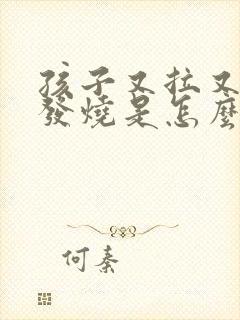 孩子又拉又
發燒是怎麼
何秦